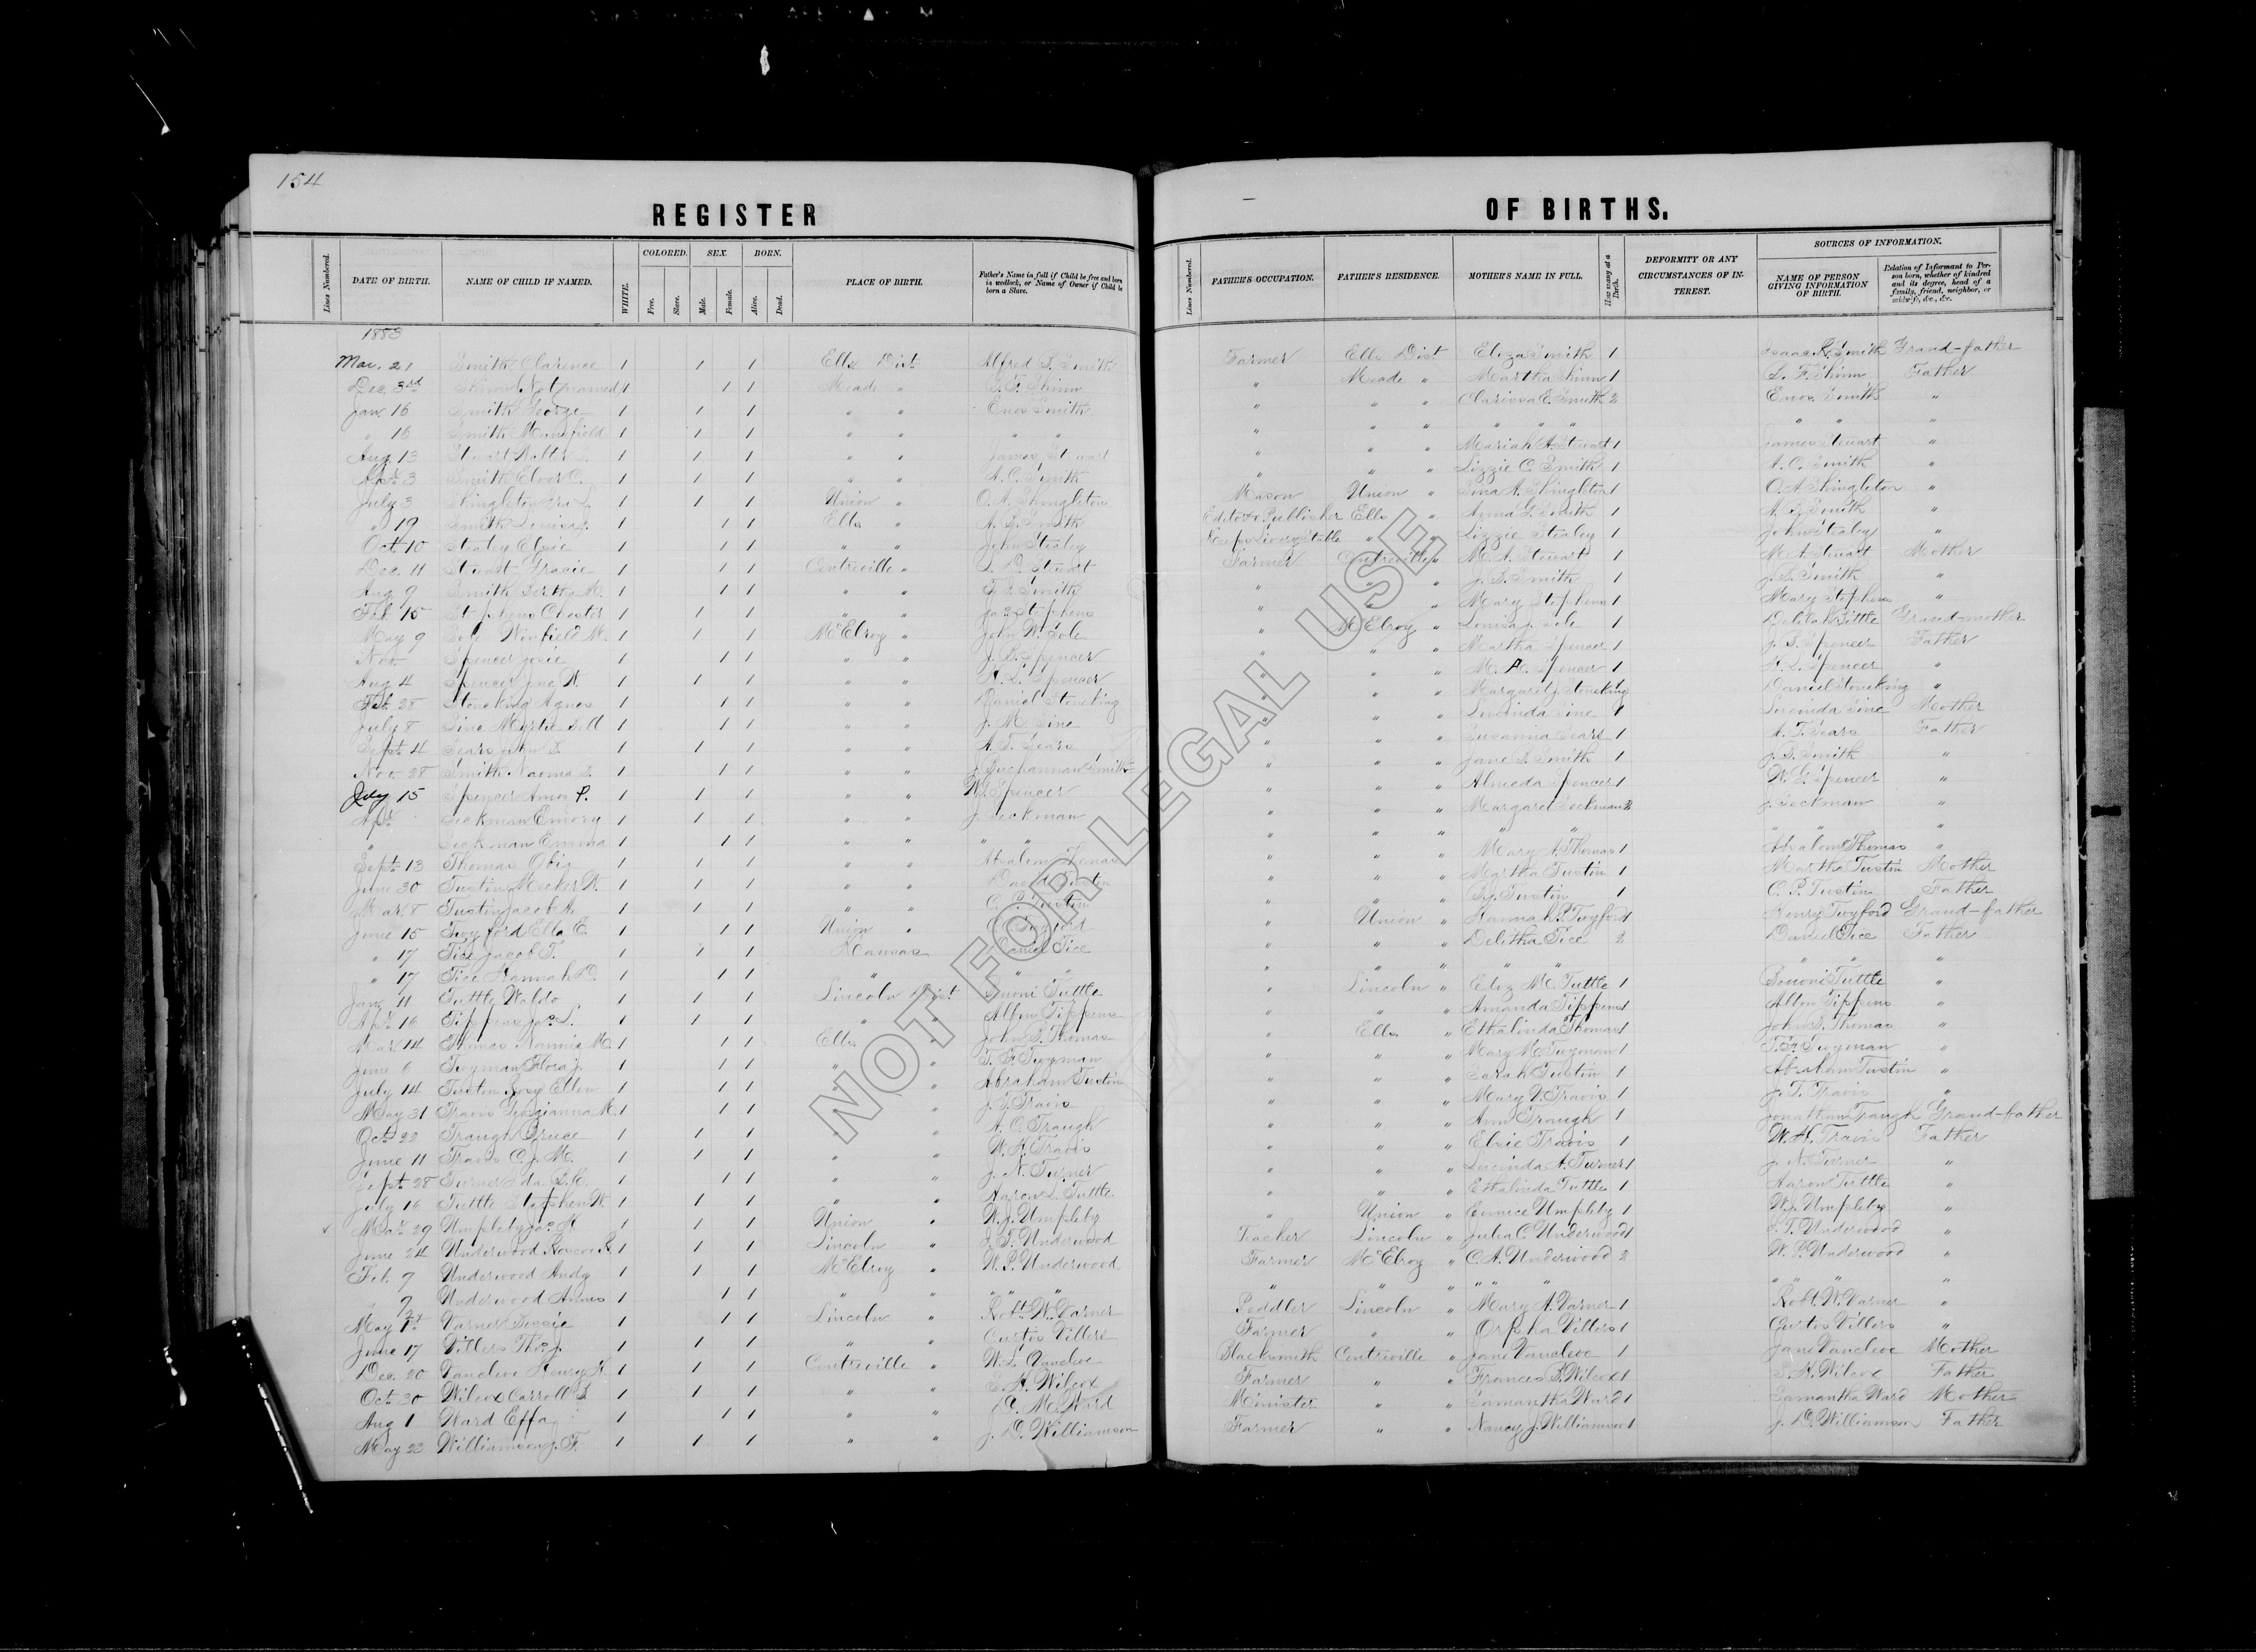 154
REGISTER OF BIRTHS.
Lines Numbered. DATE OF BIRTH. NAME OF CHILD IF NAMED. WHITE. COLORED. Free. Slave. SEX. Male. Female. BORN. Alive. Dead. PLACE OF BIRTH. Father's Name in full if Child be free and born in wedlock, or Name of Owner if Child be born a Slave. Lines Numbered. FATHER'S OCCUPATION. FATHER'S RESIDENCE. MOTHER'S NAME IN FULL. How many at a Birth. DEFORMITY OR ANY CIRCUMSTANCES OF INTEREST. SOURCES OF INFORMATION. NAME OF PERSON GIVING INFORMATION OF BIRTH. Relation of Informant to Person born, whether of kindred and its degree, head of a family, friend, neighbor, or midwife, &c., &c.
1883
Mar. 21 Smith Clarence 1 1 1 Ells Dist Alfred S. Smith Farmer Ells Dist Eliza Smith 1 Isaac R. Smith Grand-father
Dec. 3rd Shinn (Not named) 1 1 1 Meade " S. F. Shinn " Meade " Martha Shinn 1 S. F. Shinn Father
Jan. 16 Smith George 1 1 1 " " Enos Smith " " " Clarissa E. Smith 2 Enos Smith "
" 16 Smith Mansfield 1 1 1 " " " " " " " " " " " " "
Aug. 13 Stewart 1 1 1 " " James Stewart " " " Mariah A. Stewart 1 James Stewart "
3 Smith 1 1 1 " " A. C. Smith " " " Lizzie C. Smith 1 A. C. Smith "
July 3 Shingleton 1 1 1 Union " O. A. Shingleton Mason Union " A. Shingleton 1 O. A. Shingleton "
" 19 Smith Louisa 1 1 1 Ells " A. S. Smith Editor & Publisher Ells " Anna G. Smith 1 A. S. Smith "
Oct. 10 Stealey Elsie 1 1 1 " " John Stealey Keeps Livery Stable " " Lizzie Stealey 1 John Stealey "
Dec. 11 Stewart Gracie 1 1 1 Centreville " Stewart Farmer Centreville " M. A. Stewart 1 M. A. Stewart Mother
Aug 9 Smith Bertha M. 1 1 1 " " Smith " " " J. S. Smith 1 J. S. Smith "
Feb. 15 Stephens Chester 1 1 1 " " Jas Stephens " " " Mary Stephens 1 Mary Stephens "
May 9 Sole Winfield M. 1 1 1 McElroy " John W. Sole " McElroy " Louisa J. Sole 1 Delilah Grand-mother
Nov. Spencer Josie 1 1 1 " " J. B. Spencer " " " Martha Spencer 1 J. B. Spencer Father
Aug 4 Spencer W. 1 1 1 " " L. Spencer " " " Spencer 1 L. Spencer "
Feb. 28 Stoneking Agnes 1 1 1 " " Daniel Stoneking " " " Margaret J. Stoneking 1 Daniel Stoneking "
July 8 Sine Myrtie Bell 1 1 1 " " J. M. Sine " " " Lucinda Sine 1 Lucinda Sine Mother
Sept. 4 Sears John 1 1 1 " " A. T. Sears " " " Susanna Sears 1 A. T. Sears Father
Nov. 28 Smith Naoma 1 1 1 " " J. Buchannan Smith " " " Jane Smith 1 J. B. Smith "
July 15 Spencer Amos P. 1 1 1 " " W. G. Spencer " " " Almeda Spencer 1 W. G. Spencer "
Apl. Seckman Emory 1 1 1 " " J. Seckman " " " Margaret Seckman 2 J. Seckman "
" Seckman Emma 1 1 1 " " " " " " " " " " " "
Sept. 13 Thomas 1 1 1 " " Absalem Thomas " " " Mary A. Thomas 1 Absalem Thomas "
June 30 Tustin Meeker W. 1 1 1 " " David Tustin " " " Martha Tustin 1 Martha Tustin Mother
Mar. 8 Tustin Jacob A. 1 1 1 " " C. P. Tustin " " " Tustin 1 C. P. Tustin Father
June 15 Twyford Ella E. 1 1 1 Union " Twyford " Union " Hannah Twyford 1 Henry Twyford Grand-father
" 17 Tice Jacob T. 1 1 1 Kansas Daniel Tice " " " Delitha Tice 2 Daniel Tice Father
" 17 Tice Hannah D. 1 1 1 " " " " " " " " " " "
Jan. 11 Tuttle Waldo 1 1 1 Lincoln Dist. Benoni Tuttle " Lincoln " Eliz. M. Tuttle 1 Benoni Tuttle "
Apl. 16 Tippens Jas. L. 1 1 1 " " Tippens " " " Amanda Tippens 1 Tippens "
Mar. 14 Thomas Nannie M. 1 1 1 Ells " John S. Thomas " Ells " Ethalinda Thomas 1 John S. Thomas "
June 6 Twyman Flora J. 1 1 1 " " T. F. Twyman " " " Mary M. Twyman 1 T. F. Twyman "
July 14 Tustin Rosy Ellen 1 1 1 " " Abraham Tustin " " " Sarah Tustin 1 Abraham Tustin "
May 31 Travis Georgianna M. 1 1 1 " " J. T. Travis " " " Mary V. Travis 1 J. T. Travis "
Oct. 22 Traugh Bruce 1 1 1 " " A. C. Traugh " " " Ann Traugh 1 Jonathan Traugh Grand-father
June 11 Travis C. J. M. 1 1 1 " " W. H. Travis " " " Elsie Travis 1 W. H. Travis Father
Sept. 28 Turner Ida 1 1 1 " " J. N. Turner " " " Lucinda A. Turner 1 J. N. Turner "
July 16 Tuttle Stephen W. 1 1 1 " " Aaron L. Tuttle " " " Ethalinda Tuttle 1 Aaron Tuttle "
29 Umpleby Jas. H. 1 1 1 Union " W. J. Umpleby " Union " Eunice Umpleby 1 W. J. Umpleby "
June 24 Underwood Roscoe R. 1 1 1 Lincoln " J. T. Underwood Teacher Lincoln " Julia C. Underwood 1 J. T. Underwood "
Feb. 9 Underwood Andy 1 1 1 McElroy " W. P. Underwood Farmer McElroy " C. A. Underwood 2 W. P. Underwood "
" 9 Underwood 1 1 1 " " " " " " " " " " " " " " " "
May 1st Varner Bessie 1 1 1 Lincoln " Robt. W. Varner Peddler Lincoln " Mary A. Varner 1 Robt. W. Varner "
June 17 Villers Thos. J. 1 1 1 " " Curtis Villers Farmer " " Orpha Villers 1 Curtis Villers "
Dec. 20 Vancleve Henry H. 1 1 1 Centreville " W. L. Vancleve Blacksmith Centreville " Jane Vancleve 1 Jane Vancleve Mother
Oct. 30 Wilcox Carroll 1 1 1 " " S. H. Wilcox Farmer " " Frances Wilcox 1 S. H. Wilcox Father
Aug 1 Ward Effa 1 1 1 " " D. M. Ward Minister " " Samantha Ward 1 Samantha Ward Mother
May 23 Williamson J. F. 1 1 1 " " J. D. Williamson Farmer " " Nancy J. Williamson 1 J. D. Williamson Father
NOT FOR LEGAL USE